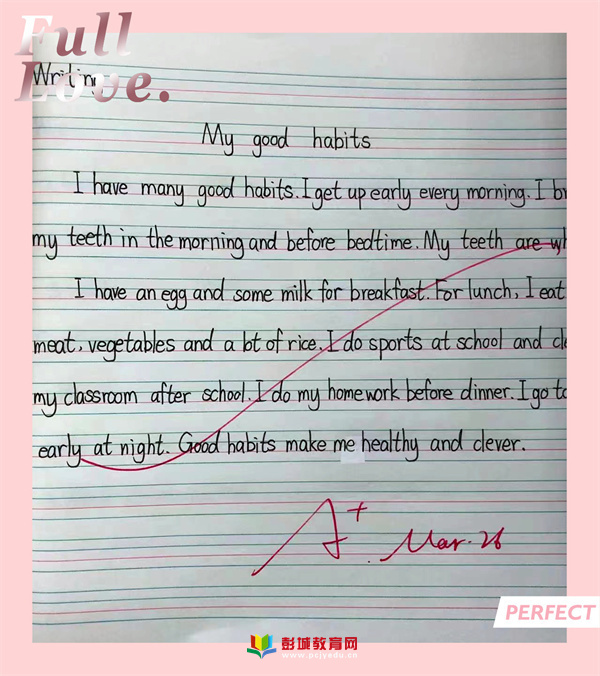 Full
Love.
Writing
My good habits
I have many good habits. I get up early every morning. I br
my teeth in the morning and before bedtime. My teeth are wh
I have an egg and some milk for breakfast. For lunch, I eat
meat, vegetables and a lot of rice. I do sports at school and cle
my classroom after school. I do my homework before dinner. I go to
early at night. Good habits make me healthy and clever.
A+ Mar. 26
PERFECT
彭城教育网
www.pcjyedu.cn